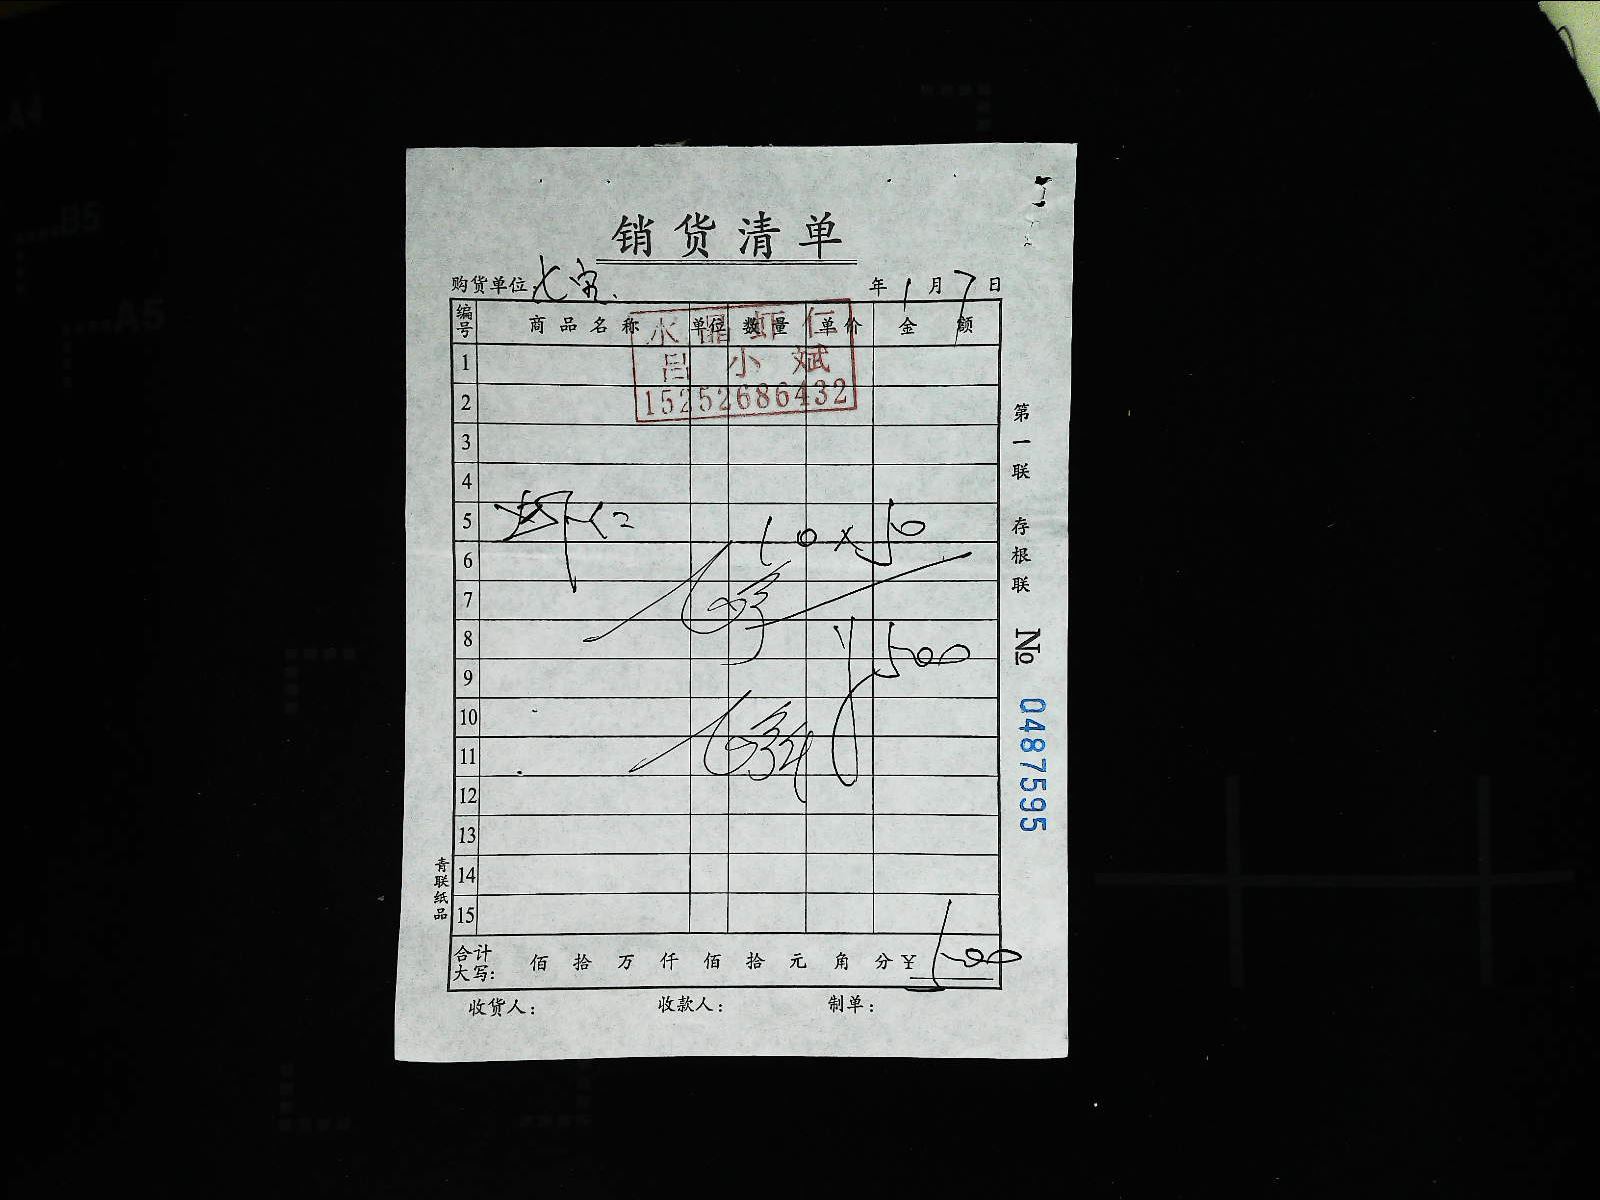 销货清单
购货单位: 年 1 月 7 日
编号 商品名称 单位 数量 单价 金额
水晶虾仁
吕小斌
15252686432
1
2
3
4
5 虾仁 10×50
6
7
8 ¥500
9
10
11
12
13
14
15
合计大写: 佰 拾 万 仟 佰 拾 元 角 分 ¥ 500
收货人: 收款人: 制单:
第一联 存根联 № 0487595
青联纸品
A4
B5
A5